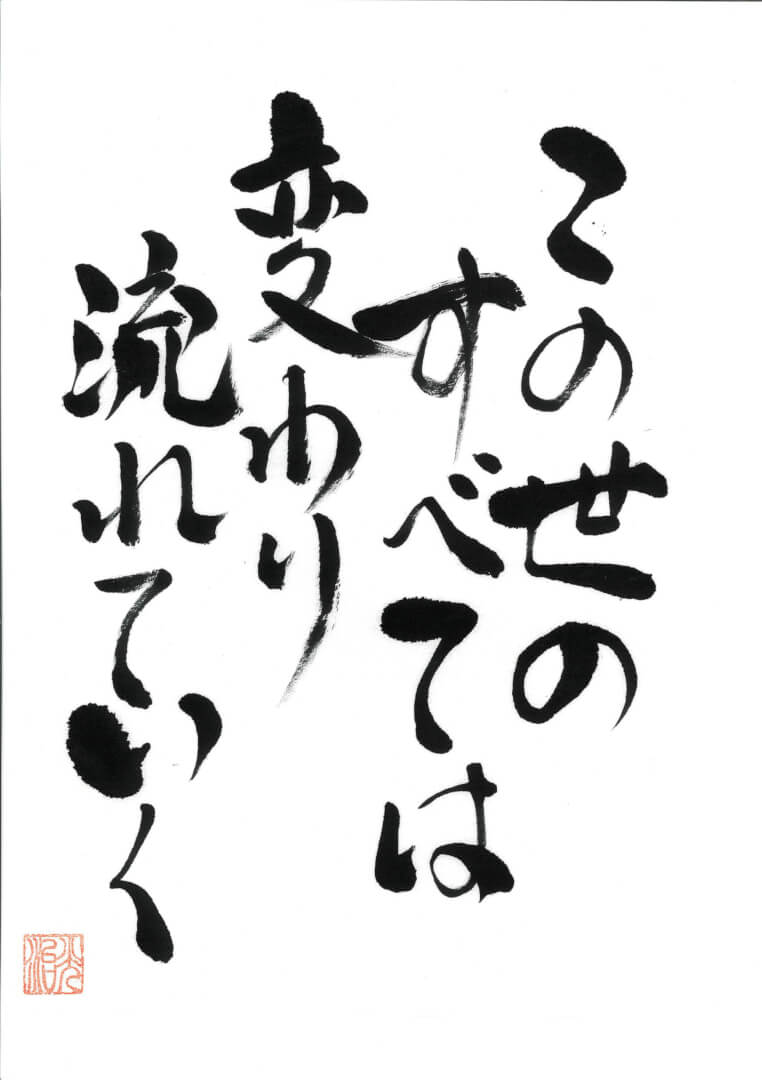 この世の
すべては
変わり
流れていく